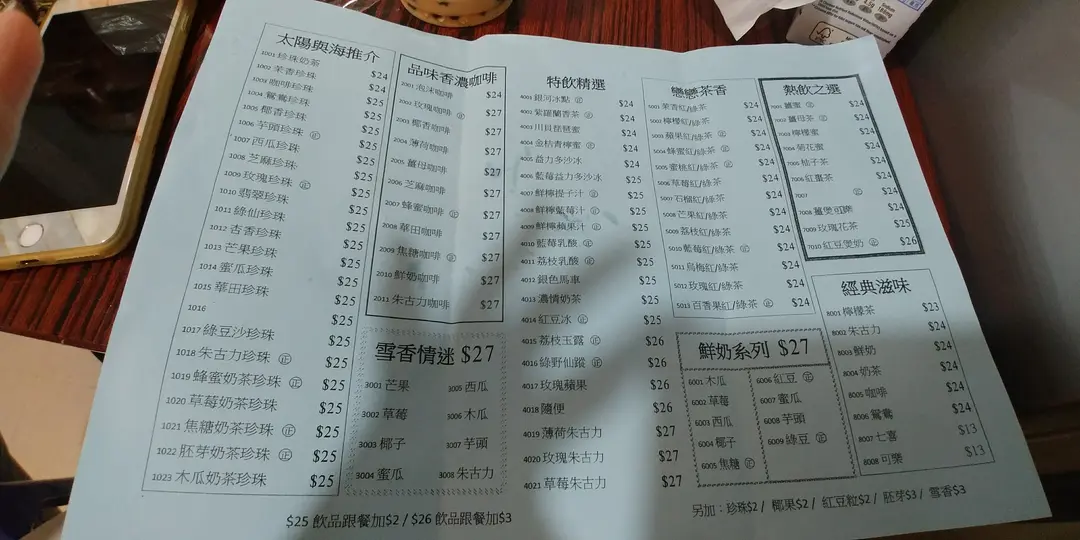 太陽與海推介
1001 珍珠奶茶 $24
1002 茉香珍珠 $24
1003 咖啡珍珠 $24
1004 鴛鴦珍珠 $25
1005 椰香珍珠 $25
1006 芋頭珍珠 ㊣ $25
1007 西瓜珍珠 $25
1008 芝麻珍珠 $25
1009 玫瑰珍珠 ㊣ $25
1010 翡翠珍珠 $25
1011 綠仙珍珠 $25
1012 杏香珍珠 $25
1013 芒果珍珠 $25
1014 蜜瓜珍珠 $25
1015 華田珍珠 $25
1016 $25
1017 綠豆沙珍珠 $25
1018 朱古力珍珠 ㊣ $25
1019 蜂蜜奶茶珍珠 ㊣ $25
1020 草莓奶茶珍珠 $25
1021 焦糖奶茶珍珠 ㊣ $25
1022 胚芽奶茶珍珠 ㊣ $25
1023 木瓜奶茶珍珠 $25
品味香濃咖啡
2001 泡沫咖啡 $24
2002 玫瑰咖啡 ㊣ $27
2003 椰香咖啡 $27
2004 薄荷咖啡 $27
2005 薑母咖啡 $27
2006 芝麻咖啡 $27
2007 蜂蜜咖啡 ㊣ $27
2008 華田咖啡 $27
2009 焦糖咖啡 ㊣ $27
2010 鮮奶咖啡 $27
2011 朱古力咖啡 $27
雪香情迷 $27
3001 芒果 3005 西瓜
3002 草莓 3006 木瓜
3003 椰子 3007 芋頭
3004 蜜瓜 3008 朱古力
特飲精選
4001 銀河冰點 ㊣ $24
4002 紫羅蘭香茶 ㊣ $24
4003 川貝琵琶蜜 $24
4004 金桔青檸蜜 ㊣ $24
4005 益力多沙冰 $24
4006 藍莓益力多沙冰 $25
4007 鮮檸提子汁 ㊣ $25
4008 鮮檸藍莓汁 ㊣ $25
4009 鮮檸蘋果汁 ㊣ $25
4010 藍莓乳酸 ㊣ $25
4011 荔枝乳酸 ㊣ $25
4012 銀色馬車 $25
4013 濃情奶茶 $25
4014 紅豆冰 ㊣ $25
4015 荔枝玉露 ㊣ $26
4016 綠野仙蹤 ㊣ $26
4017 玫瑰蘋果 $26
4018 隨便 $26
4019 薄荷朱古力 $27
4020 玫瑰朱古力 $27
4021 草莓朱古力 $27
戀戀茶香
5001 茉香紅/綠茶 $24
5002 檸檬紅/綠茶 $24
5003 蘋果紅/綠茶 ㊣ $24
5004 蜂蜜紅/綠茶 ㊣ $24
5005 蜜桃紅/綠茶 ㊣ $24
5006 草莓紅/綠茶 $24
5007 石榴紅/綠茶 $24
5008 芒果紅/綠茶 $24
5009 荔枝紅/綠茶 $24
5010 藍莓紅/綠茶 ㊣ $24
5011 烏梅紅/綠茶 $24
5012 玫瑰紅/綠茶 $24
5013 百香果紅/綠茶 ㊣ $24
鮮奶系列 $27
6001 木瓜 6006 紅豆 ㊣
6002 草莓 6007 蜜瓜
6003 西瓜 6008 芋頭
6004 椰子 6009 綠豆 ㊣
6005 焦糖 ㊣
熱飲之選
7001 薑蜜 ㊣ $24
7002 薑母茶 ㊣ $24
7003 檸檬蜜 $24
7004 菊花蜜 $24
7005 柚子茶 $24
7006 紅棗茶 $24
7007 ㊣ $24
7008 薑煲可樂 $24
7009 玫瑰花茶 $25
7010 紅豆煲奶 ㊣ $26
經典滋味
8001 檸檬茶 $23
8002 朱古力 $24
8003 鮮奶 $24
8004 奶茶 $24
8005 咖啡 $24
8006 鴛鴦 $24
8007 七喜 $13
8008 可樂 $13
$25 飲品跟餐加$2 / $26 飲品跟餐加$3
另加：珍珠$2 / 椰果$2 / 紅豆粒$2 / 胚芽$3 / 雪香$3